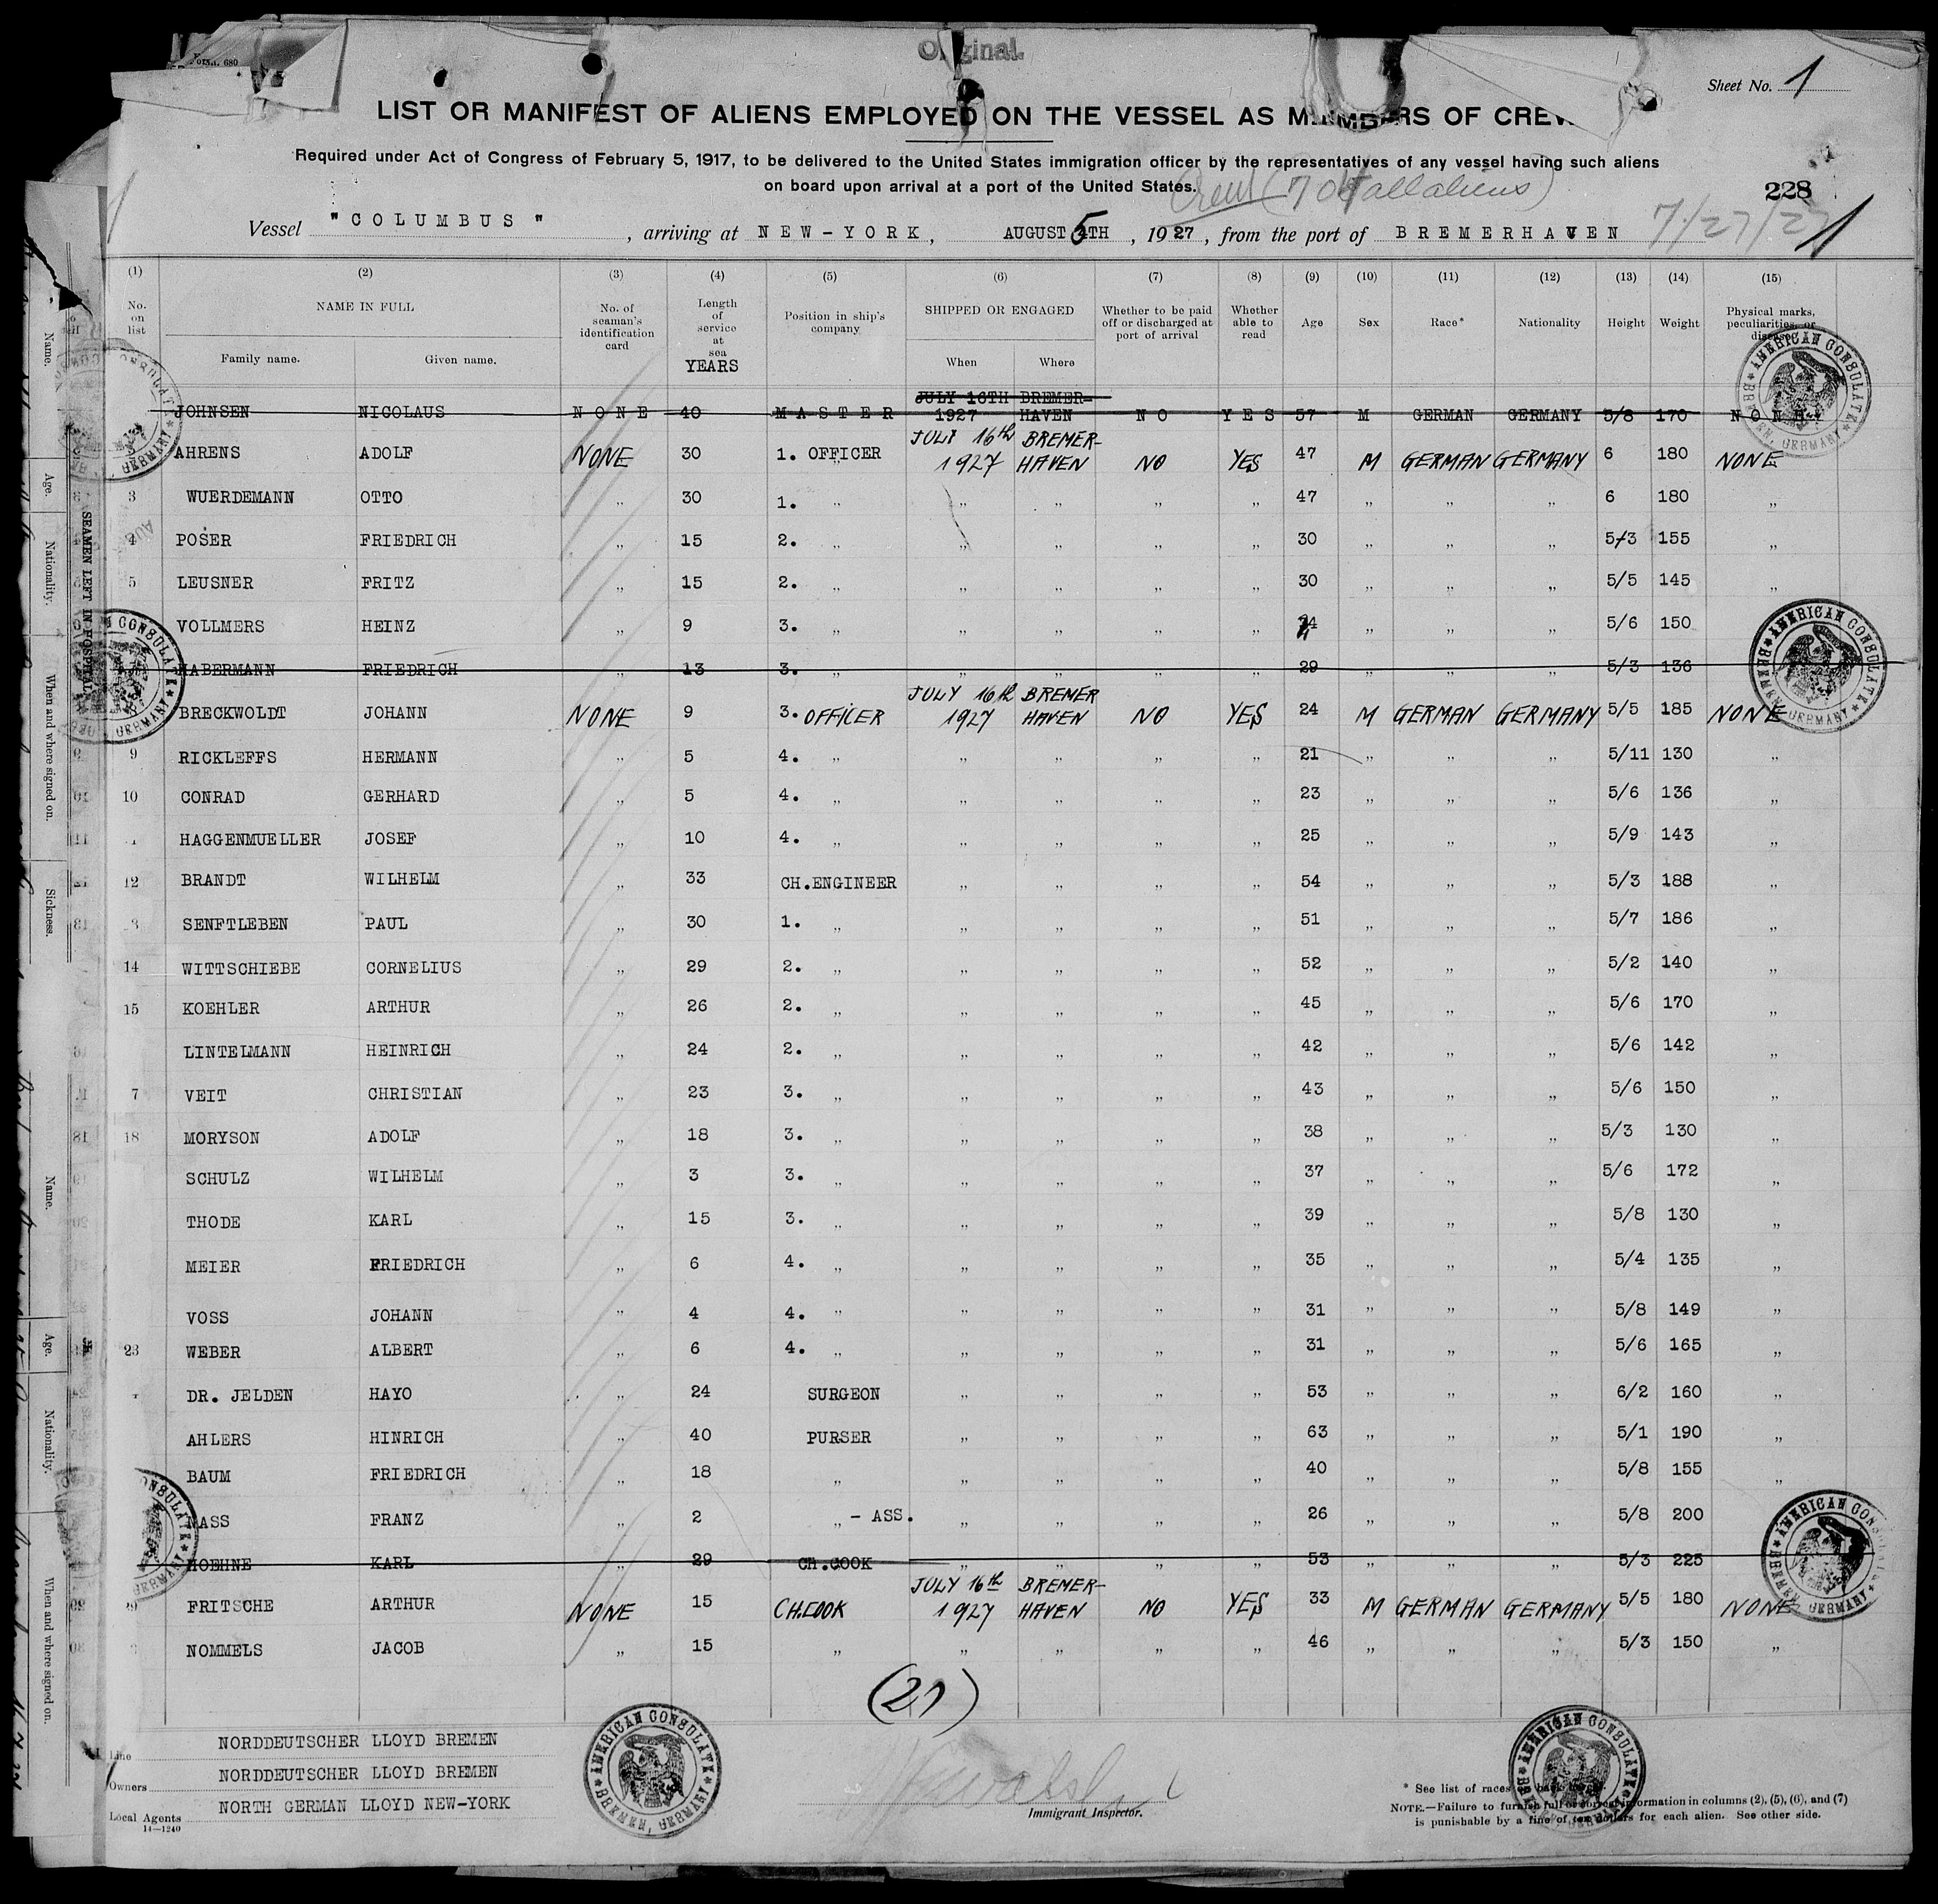 Form 680
Original
Sheet No. 1
LIST OR MANIFEST OF ALIENS EMPLOYED ON THE VESSEL AS MEMBERS OF CREW
Required under Act of Congress of February 5, 1917, to be delivered to the United States immigration officer by the representatives of any vessel having such aliens
on board upon arrival at a port of the United States.
Crew (704 all aliens)
228
Vessel "COLUMBUS", arriving at NEW-YORK, AUGUST 5TH, 1927, from the port of BREMERHAVEN
7/27/27 1
(1) (2) (3) (4) (5) (6) (7) (8) (9) (10) (11) (12) (13) (14) (15)
No. on list NAME IN FULL No. of seaman's identification card Length of service at sea YEARS Position in ship's company SHIPPED OR ENGAGED Whether to be paid off or discharged at port of arrival Whether able to read Age Sex Race* Nationality Height Weight Physical marks, peculiarities, or disease
Family name. Given name. When Where
JULY 16TH BREMER-
JOHNSEN NICOLAUS NONE 40 MASTER 1927 HAVEN NO YES 57 M GERMAN GERMANY 5/8 170 NONE
JULY 16th BREMER-
AHRENS ADOLF NONE 30 1. OFFICER 1927 HAVEN NO YES 47 M GERMAN GERMANY 6 180 NONE
3 WUERDEMANN OTTO ,, 30 1. ,, ,, ,, ,, ,, 47 ,, ,, ,, 6 180 ,,
4 POSER FRIEDRICH ,, 15 2. ,, ,, ,, ,, ,, 30 ,, ,, ,, 5/3 155 ,,
5 LEUSNER FRITZ ,, 15 2. ,, ,, ,, ,, ,, 30 ,, ,, ,, 5/5 145 ,,
VOLLMERS HEINZ ,, 9 3. ,, ,, ,, ,, ,, 24 ,, ,, ,, 5/6 150 ,,
HABERMANN FRIEDRICH ,, 13 3. ,, ,, ,, ,, ,, 29 ,, ,, ,, 5/3 136
JULY 16th BREMER
BRECKWOLDT JOHANN NONE 9 3. OFFICER 1927 HAVEN NO YES 24 M GERMAN GERMANY 5/5 185 NONE
9 RICKLEFFS HERMANN ,, 5 4. ,, ,, ,, ,, ,, 21 ,, ,, ,, 5/11 130 ,,
10 CONRAD GERHARD ,, 5 4. ,, ,, ,, ,, ,, 23 ,, ,, ,, 5/6 136 ,,
HAGGENMUELLER JOSEF ,, 10 4. ,, ,, ,, ,, ,, 25 ,, ,, ,, 5/9 143 ,,
12 BRANDT WILHELM ,, 33 CH.ENGINEER ,, ,, ,, ,, 54 ,, ,, ,, 5/3 188 ,,
SENFTLEBEN PAUL ,, 30 1. ,, ,, ,, ,, ,, 51 ,, ,, ,, 5/7 186 ,,
14 WITTSCHIEBE CORNELIUS ,, 29 2. ,, ,, ,, ,, ,, 52 ,, ,, ,, 5/2 140 ,,
15 KOEHLER ARTHUR ,, 26 2. ,, ,, ,, ,, ,, 45 ,, ,, ,, 5/6 170 ,,
LINTELMANN HEINRICH ,, 24 2. ,, ,, ,, ,, ,, 42 ,, ,, ,, 5/6 142 ,,
7 VEIT CHRISTIAN ,, 23 3. ,, ,, ,, ,, ,, 43 ,, ,, ,, 5/6 150 ,,
18 MORYSON ADOLF ,, 18 3. ,, ,, ,, ,, ,, 38 ,, ,, ,, 5/3 130 ,,
SCHULZ WILHELM ,, 3 3. ,, ,, ,, ,, ,, 37 ,, ,, ,, 5/6 172 ,,
THODE KARL ,, 15 3. ,, ,, ,, ,, ,, 39 ,, ,, ,, 5/8 130 ,,
MEIER FRIEDRICH ,, 6 4. ,, ,, ,, ,, ,, 35 ,, ,, ,, 5/4 135 ,,
VOSS JOHANN ,, 4 4. ,, ,, ,, ,, ,, 31 ,, ,, ,, 5/8 149 ,,
23 WEBER ALBERT ,, 6 4. ,, ,, ,, ,, ,, 31 ,, ,, ,, 5/6 165 ,,
DR. JELDEN HAYO ,, 24 SURGEON ,, ,, ,, ,, 53 ,, ,, ,, 6/2 160 ,,
AHLERS HINRICH ,, 40 PURSER ,, ,, ,, ,, 63 ,, ,, ,, 5/1 190 ,,
BAUM FRIEDRICH ,, 18 ,, ,, ,, ,, ,, 40 ,, ,, ,, 5/8 155 ,,
FRANZ ,, 2 ,, - ASS. ,, ,, ,, ,, 26 ,, ,, ,, 5/8 200
HOEHNE KARL ,, 29 CH.COOK ,, ,, ,, ,, 53 ,, ,, ,, 5/3 225
JULY 16th BREMER-
FRITSCHE ARTHUR NONE 15 CH.COOK 1927 HAVEN NO YES 33 M GERMAN GERMANY 5/5 180 NONE
NOMMELS JACOB ,, 15 ,, ,, ,, ,, ,, 46 ,, ,, ,, 5/3 150 ,,
(27)
Line NORDDEUTSCHER LLOYD BREMEN
Owners NORDDEUTSCHER LLOYD BREMEN
Local Agents NORTH GERMAN LLOYD NEW-YORK
14—1240
Immigrant Inspector.
* See list of races on back hereof.
NOTE.—Failure to furnish full or correct information in columns (2), (5), (6), and (7)
is punishable by a fine of ten dollars for each alien. See other side.
AMERICAN CONSULATE BREMEN, GERMANY
AMERICAN CONSULATE BREMEN, GERMANY
AMERICAN CONSULATE BREMEN, GERMANY
AMERICAN CONSULATE BREMEN, GERMANY
AMERICAN CONSULATE BREMEN, GERMANY
SEAMEN LEFT IN HOSPITAL
Name.
Age.
Nationality.
When and where signed on.
Sickness.
Name.
Age.
Nationality.
When and where signed on.